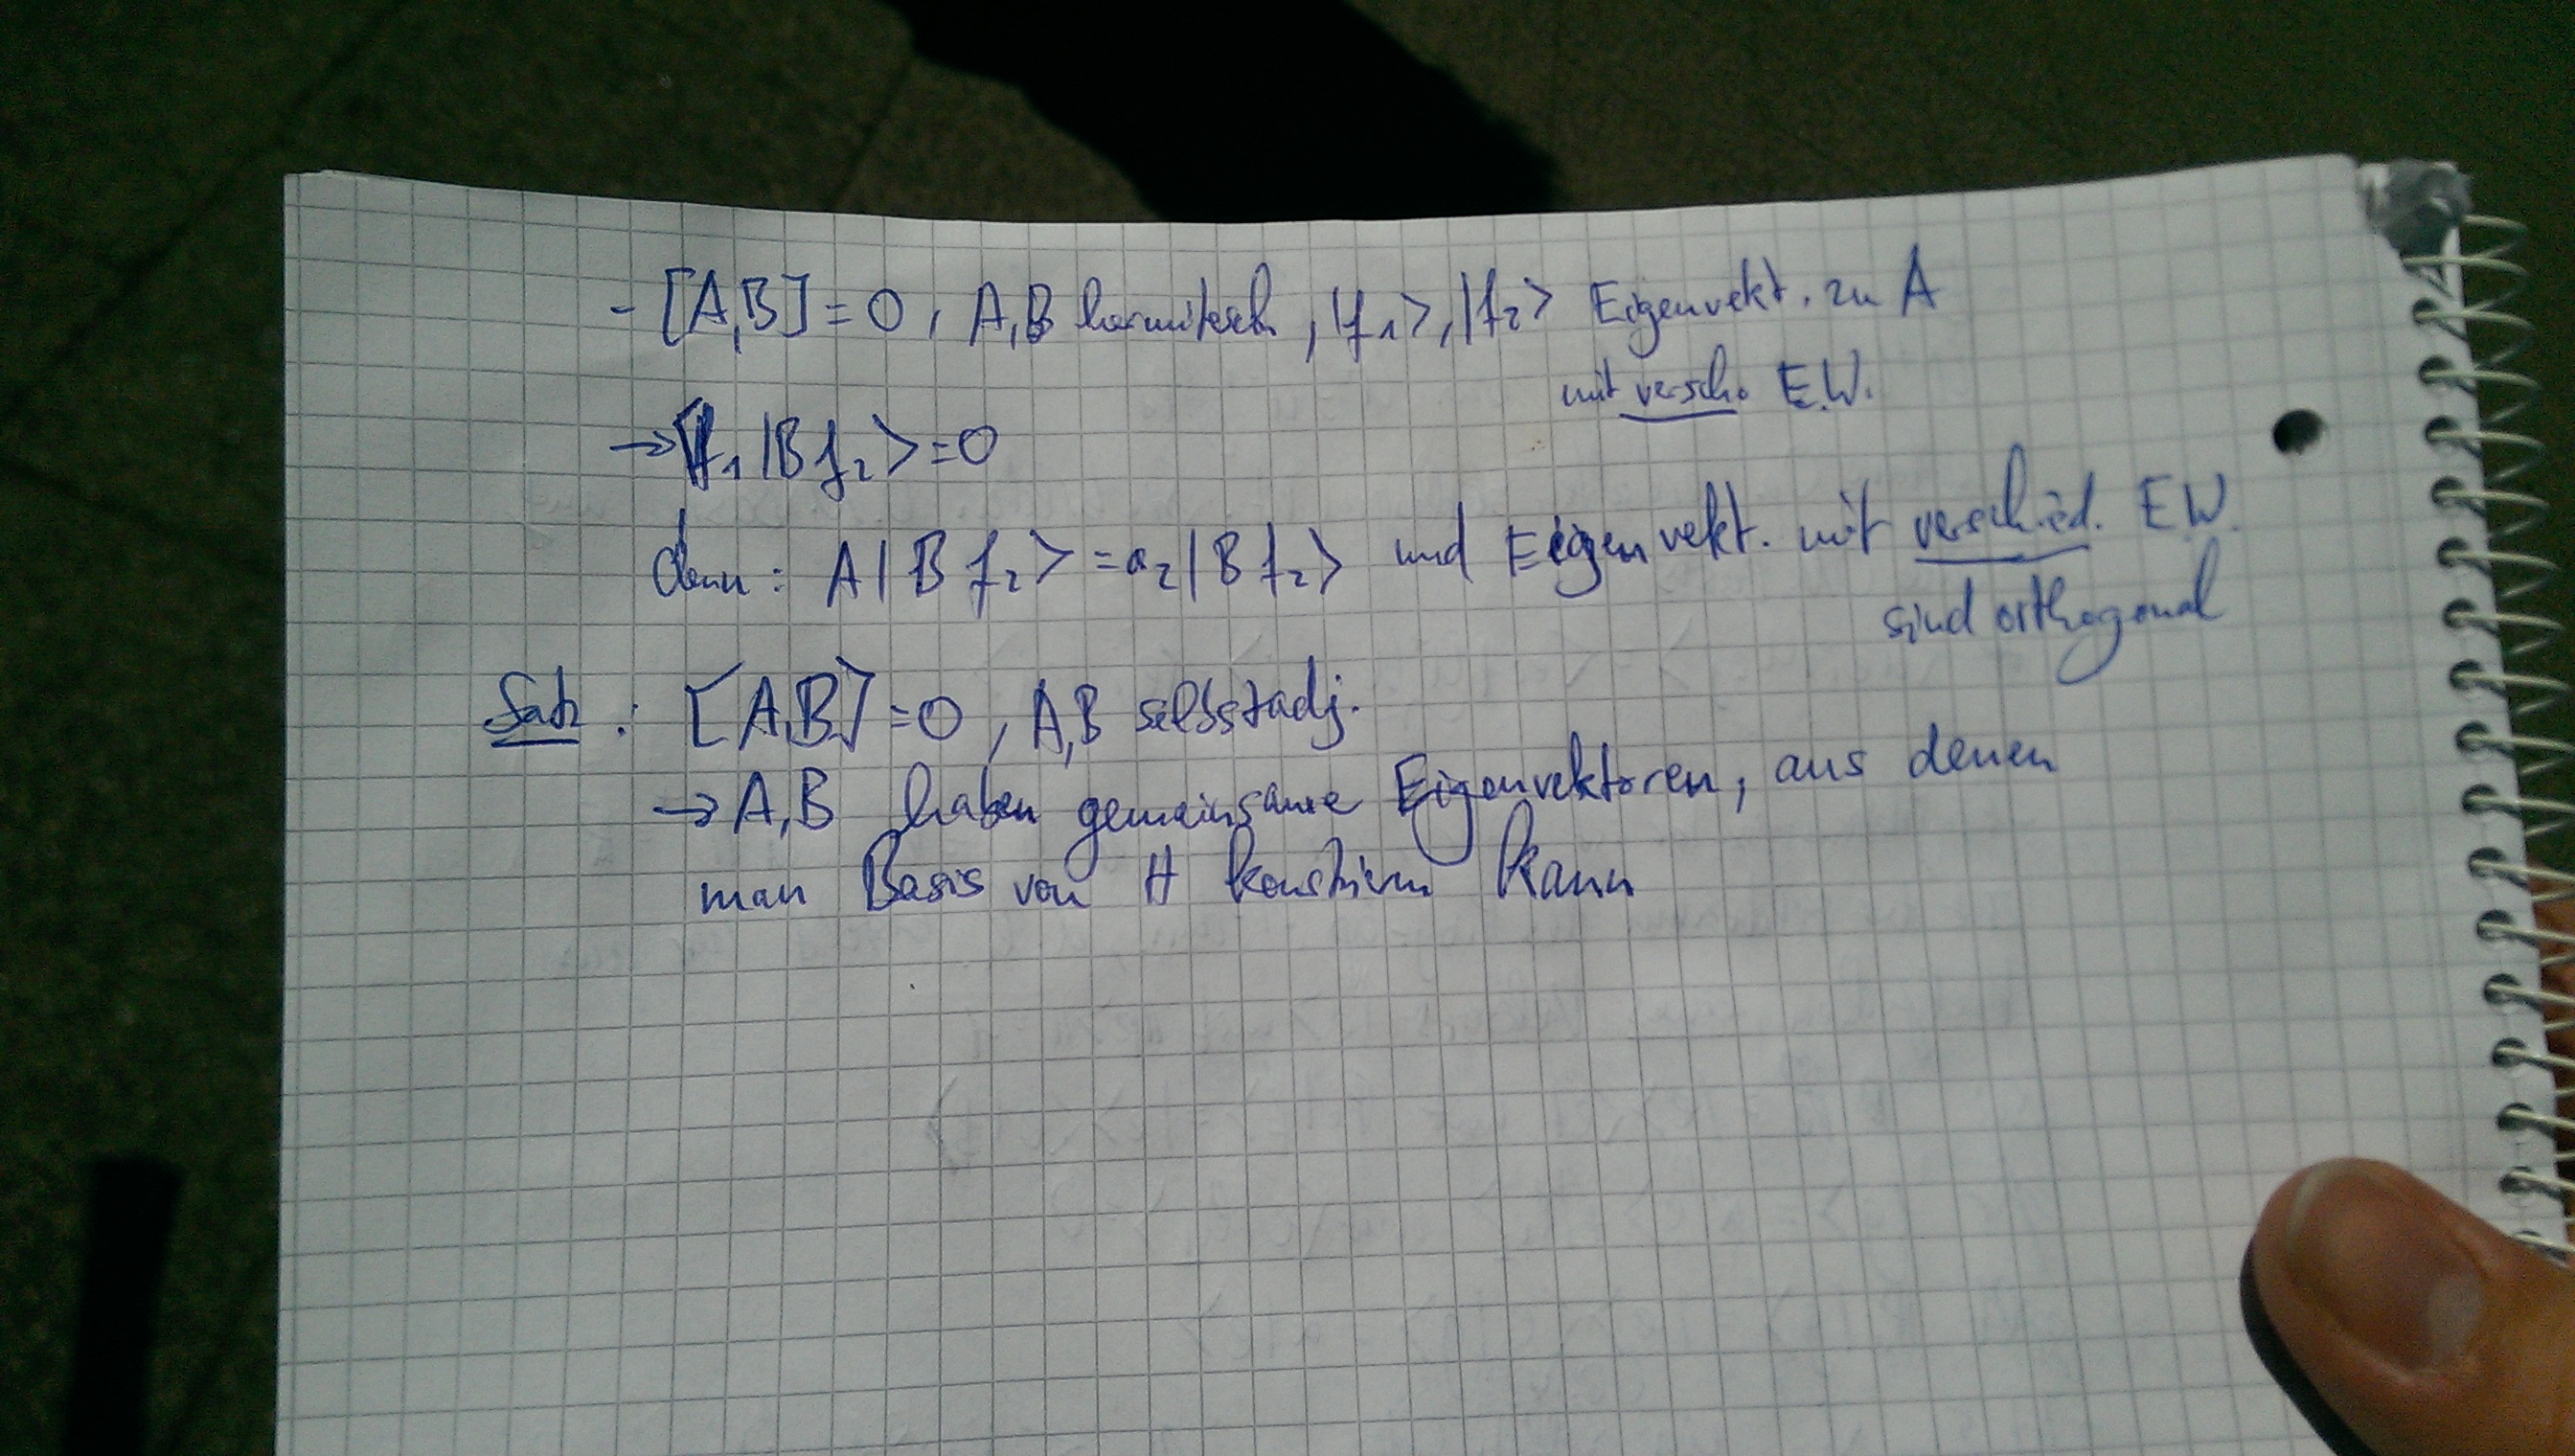 - [A,B] = 0, A,B hermitesch, |f₁>, |f₂> Eigenvekt. zu A
mit versch. E.W.
→ <f₁|B f₂> = 0
denn: A|B f₂> = a₂|B f₂> und Eigenvekt. mit verschied. E.W.
sind orthogonal
Satz: [A,B] = 0, A,B selbstadj.
→ A,B haben gemeinsame Eigenvektoren, aus denen
man Basis von H kann